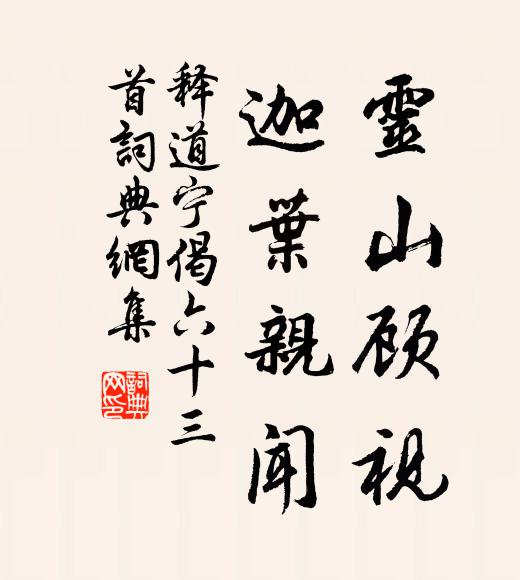 靈山顾視
迦葉親聞
释道宁偈六十三
首詞典網集
詞典
网印